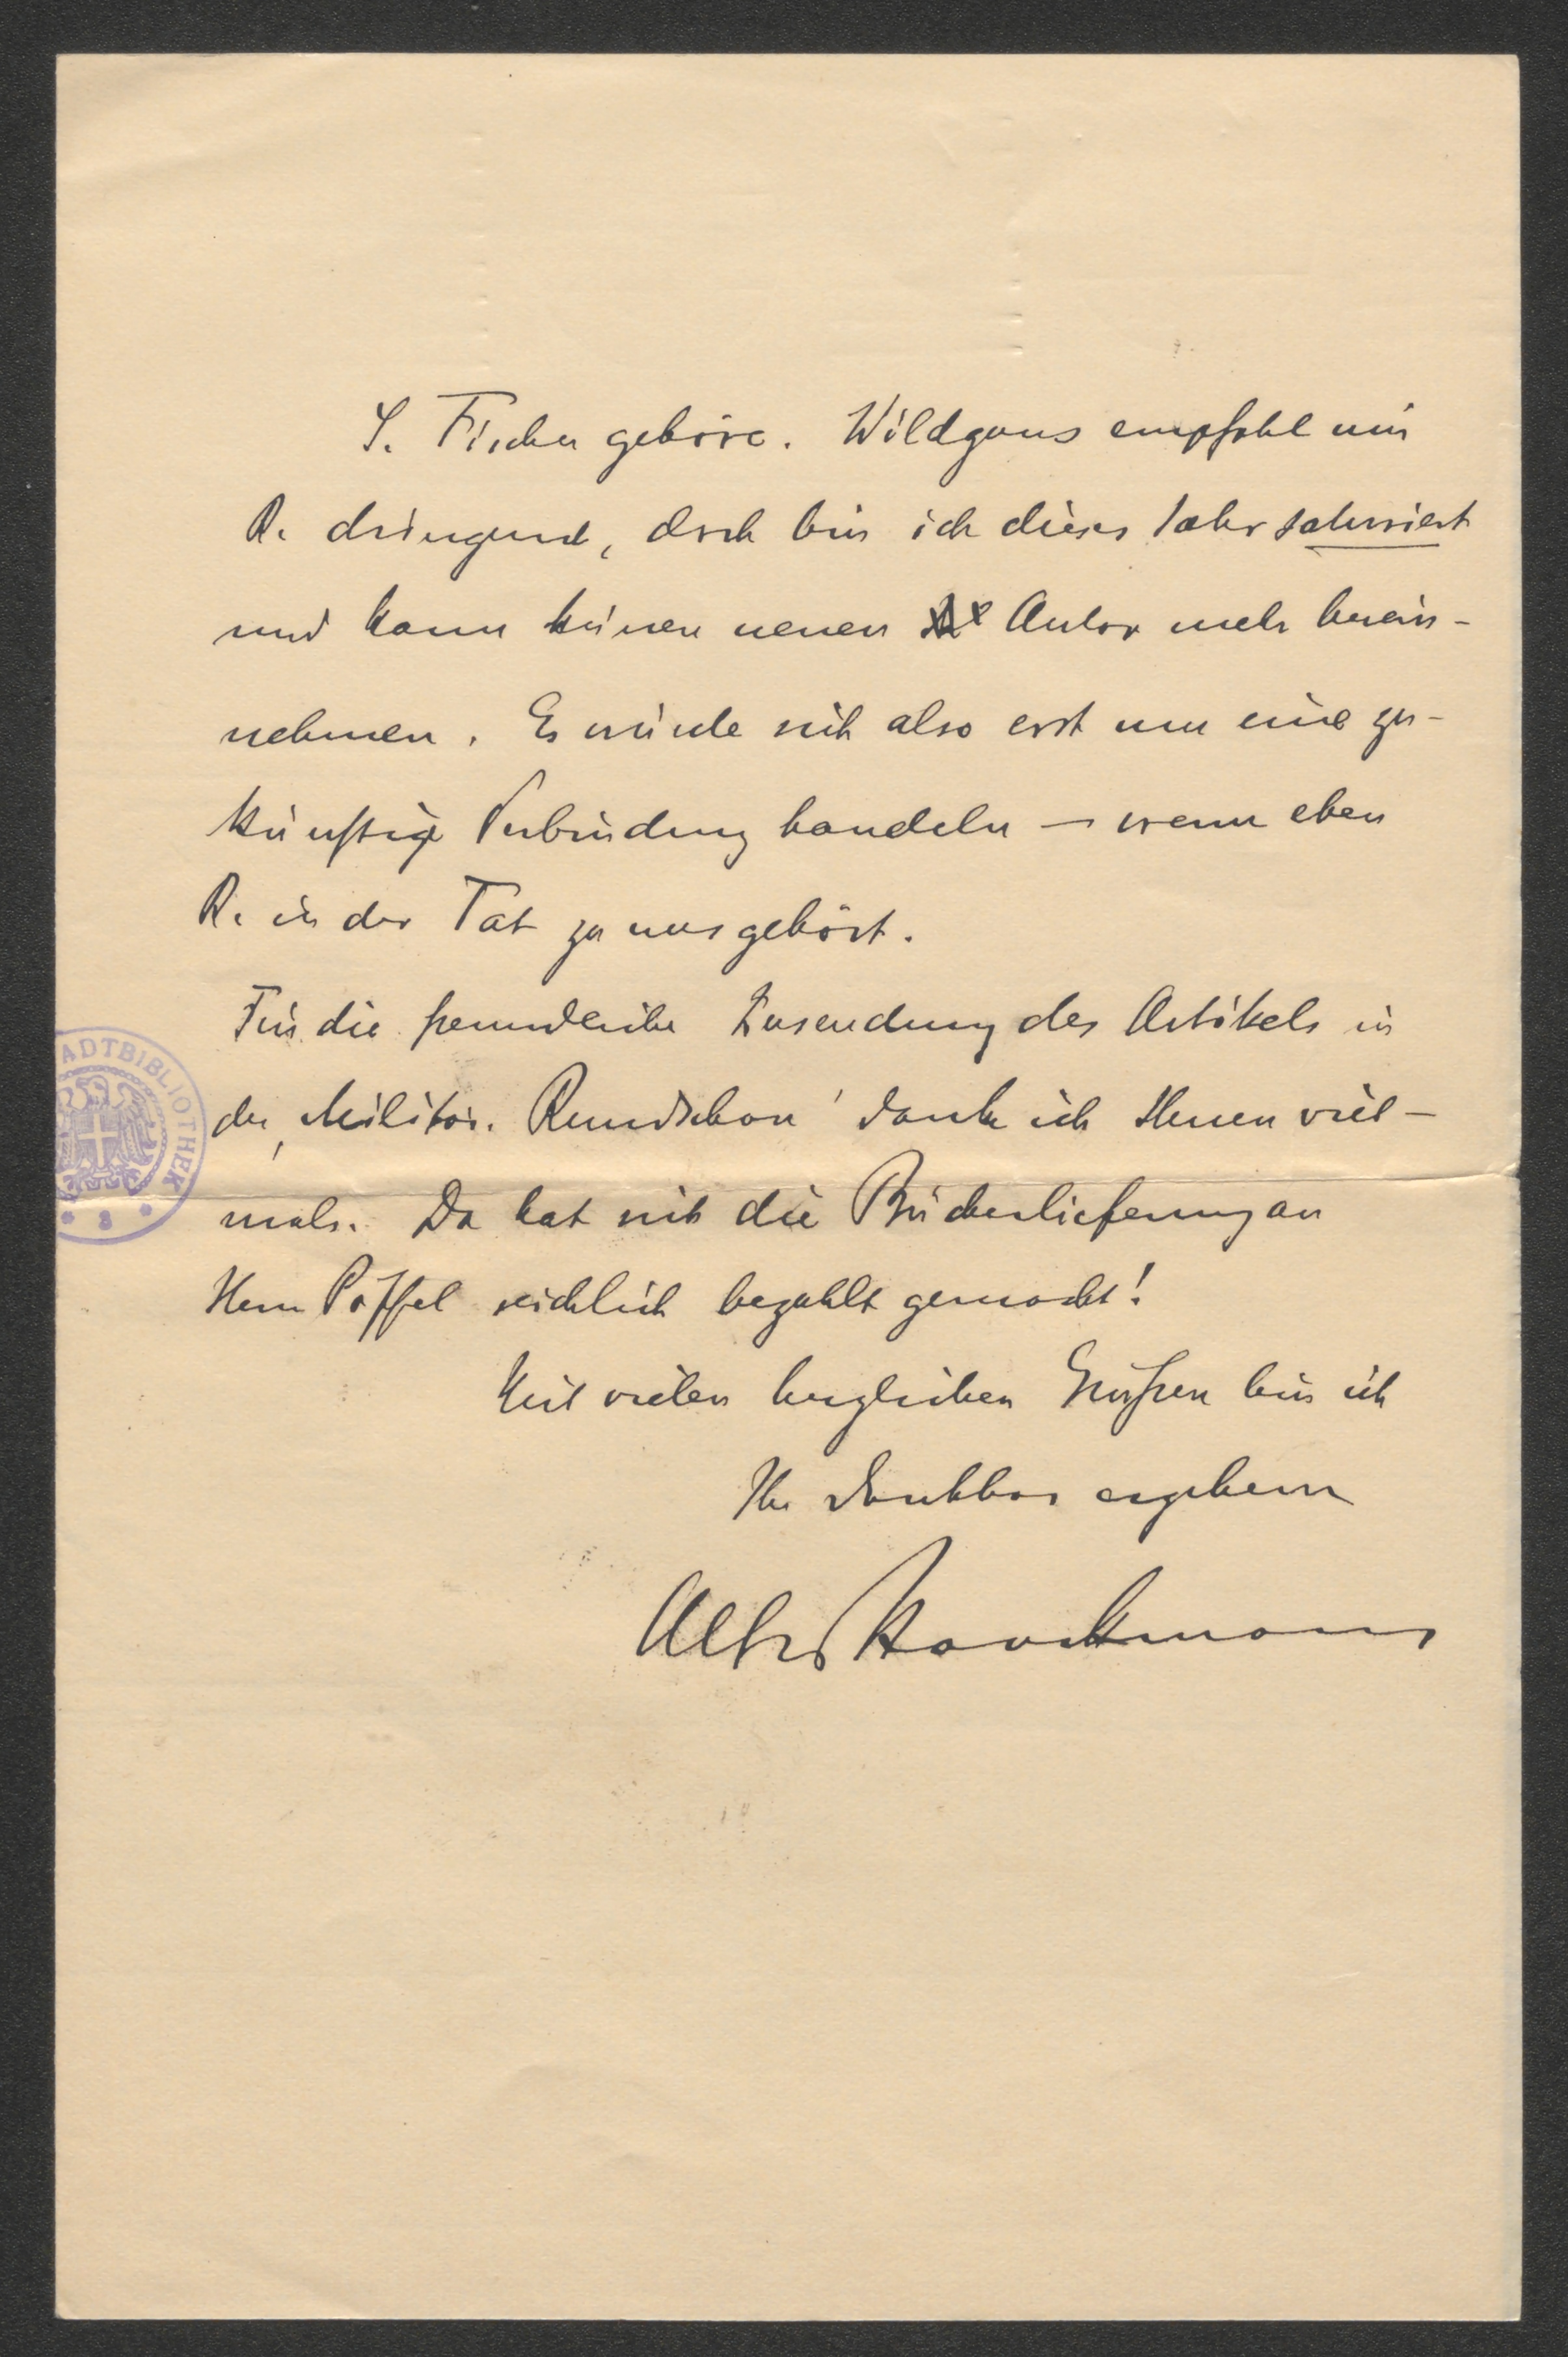 S. Fischer gehöre. Wildgans empfahl mir
R. dringend, doch bin ich dieses Jahr saturiert
und kann keinen neuen Autor mehr herein-
nehmen. Es würde sich also erst um eine zu-
künftige Verbindung handeln — wenn eben
R. in der Tat zu uns gehört.
Für die freundliche Zusendung des Artikels in
der „Militär. Rundschau" danke ich Ihnen viel-
mals. Da hat sich die Bücherlieferung an
Herrn reichlich bezahlt gemacht!
Mit vielen herzlichen Grüßen bin ich
Ihr dankbar ergebener
Alfred Staackmann
ADTBIBLIOTHEK
8